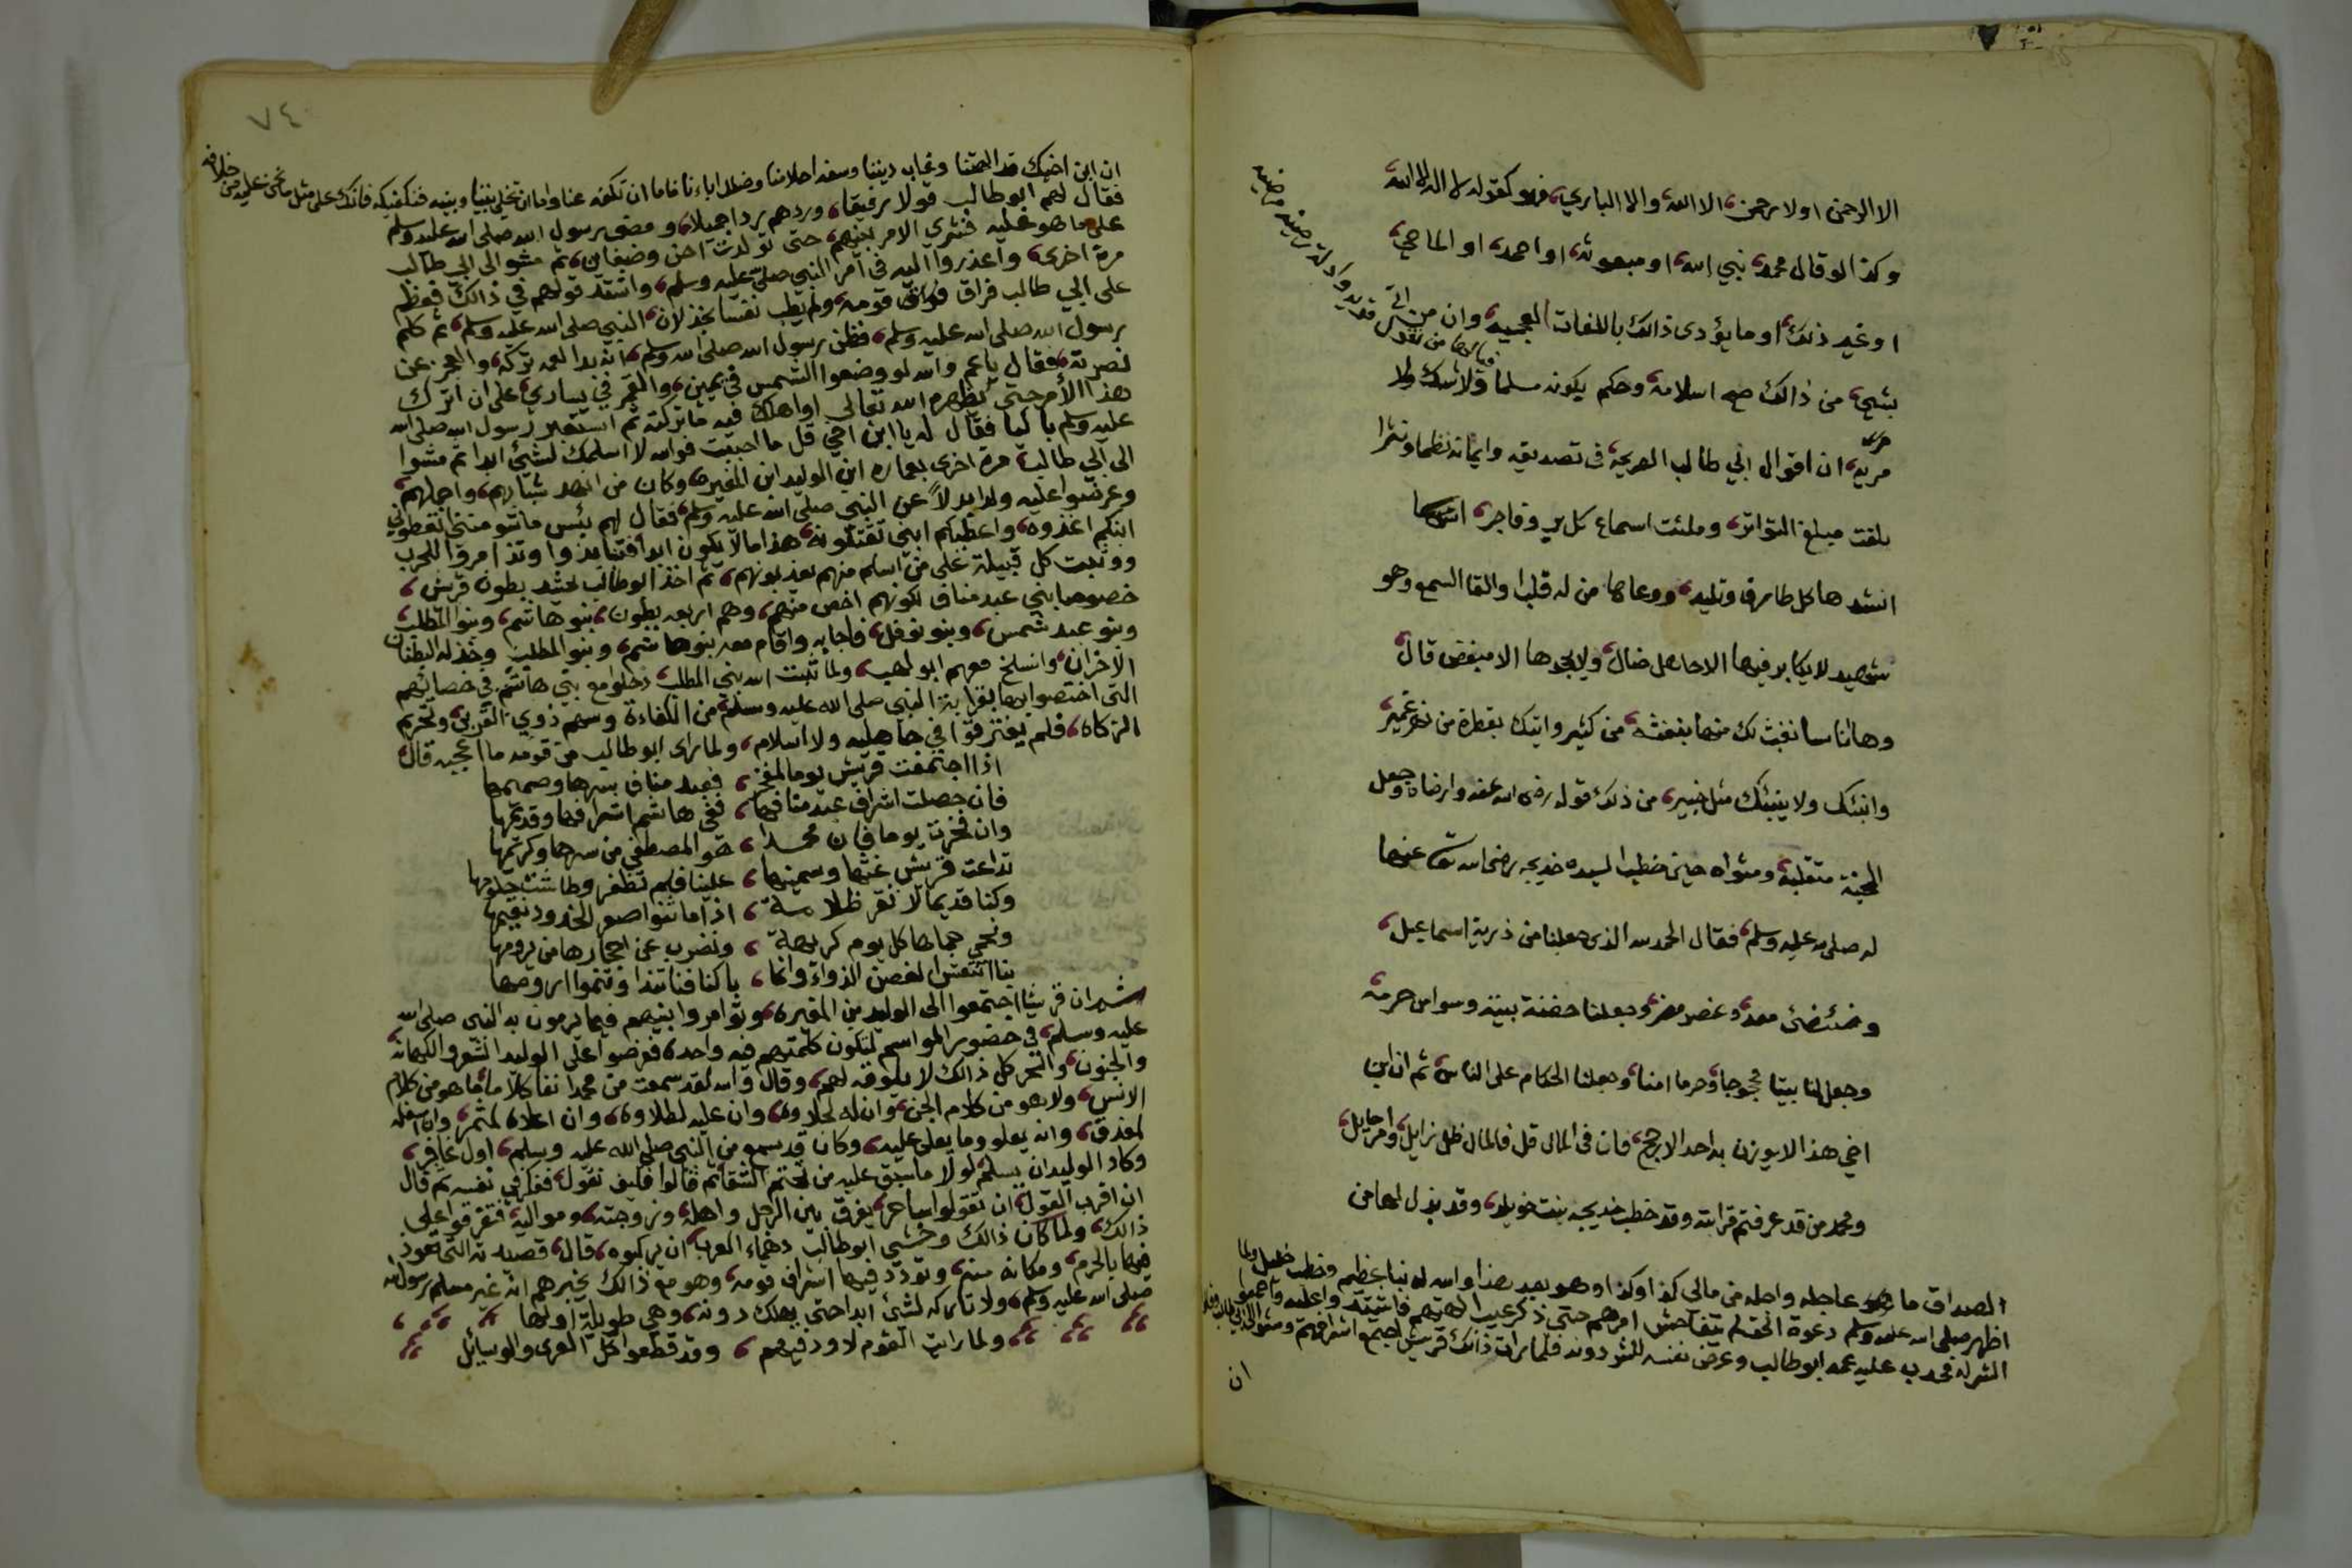 الا الرحمن اولا رحمن الا الله والا الباري فهو كقوله لا اله الا الله
وكذا لو قال محمد نبي الله او مبعوثه او احمد او الماحي
او غير ذلك او ما يؤدى ذالك باللغات العجميه وان من اتى
بشيء من ذالك صح اسلامه وحكم بكونه مسلما ولا شك ولا
مريه ان اقوال ابي طالب الصريحه في تصديقه وايمانه نظما ونثرا
بلغت مبلغ التواتر وملئت اسماع كل بر وفاجر
انشدها كل طارف وتليد ووعاها من له قلب والقا السمع وهو
شهيد لا يكابر فيها الا جاهل ضال ولا يجحدها الا مبغض قال
وها انا سانفث لك منها بنفثه من كثير واتيك بقطرة من نهر غمير
وانبئك ولا ينبئك مثل خبير من ذلك قوله رضي الله عنه وارضاه وجعل
الجنة متقلبه ومثواه حين خطب السيده خديجه رضى الله تعا عنها
له صلى الله عليه وسلم فقال الحمد لله الذى جعلنا من ذرية اسماعيل
وضئضئ معد وعنصر مضر وجعلنا حضنة بيته وسواس حرمه
وجعل لنا بيتا محجوجا وحرما امنا وجعلنا الحكام على الناس ثم ان ابن
اخي هذا لا يوزن به احد الا رجح فان كان فى المال قل فالمال ظل زايل وامر حايل
ومحمد من قد عرفتم قرابته وقد خطب خديجه بنت خويلد وقد بذل لها من
الصداق ما عاجله واجله من مالى كذا وكذا وهو بعد هذا والله له نبا عظيم وخطب جليل ولما
اظهر صلى الله عليه وسلم دعوة الحق لم يتفاحش امرهم حتى ذكر عيب الهتهم
الشر له فحدب عليه عمه ابو طالب وعرض نفسه للشر دونه فلما رات ذالك قريش اجتمع اشرافهم ومشوا الى ابي طالب
ان
٧٤
ان ابن اخيك قد الهتنا وعاب ديننا وسفه احلامنا وضلل اباءنا فاما ان تكفه عنا واما ان تخلي بيننا وبينه فنكفيكه فانك على مثل ما نحن عليه من خلافه
فقال لهم ابو طالب قولا رفيقا وردهم ردا جميلا ومضى رسول الله صلى الله عليه وسلم
على ما هو عليه فشري الامر بينهم حتى تولدت احن وضغاين ثم مشوا الى ابي طالب
مرة اخرى واعذروا اليه في امر النبي صلى عليه وسلم واشتد قولهم في ذالك فعظم
على ابي طالب فراق قومه ولم يطب نفسا بخذلان النبي صلى الله عليه وسلم ثم كلم
رسول الله صلى الله عليه وسلم فظن رسول الله صلى الله وسلم انه بدا لعمه تركه والعجز عن
نصرته فقال يا عم والله لو وضعوا الشمس في يميني والقمر في يساري على ان اترك
هذا الأمر حتى يظهره الله تعالى او اهلك فيه ما تركته ثم استعبر رسول الله صلى الله
عليه وسلم باكيا فقال له يا ابن اخي قل ما احببت فوالله لا اسلمك لشئ ابدا ثم مشوا
الى ابي طالب مرة اخرى بعماره ابن الوليد ابن المغيره وكان من انهد شبابهم واجملهم
وعرضوا عليه ولدا بدلاً عن النبي صلى الله عليه وسلم فقال لهم بئس ما تسومنني اتعطوني
ابنكم اغذوه واعطيكم ابني تقتلونه هذا ما لا يكون ابدا فتنابذوا وتذامروا للحرب
ووثبت كل قبيلة على من اسلم منهم يعذبونهم ثم اخذ ابو طالب يحشد بطون قريش
خصوصا بني عبد مناف لكونهم اخص منهم وهم اربعه بطون بنو هاشم وبنو المطلب
وبنو عبد شمس وبنو نوفل فاجابه واقام معه بنو هاشم وبنو المطلب وخذله البطنان
الاخران وانسلخ معهم ابو لهب ولما ثبت الله بني المطلب دخلوا مع بني هاشم في خصائصهم
التى اختصوا بها بقرابة النبي صلى الله عليه وسلم من الكفاءة وسهم ذوي القربى وتحريم
الزكاه فلم يفترقوا في جاهليه ولا اسلام ولما راى ابو طالب من قومه ما اعجبه قال
اذا اجتمعت قريش يوما لمفخر فعبد مناف سرها وصميمها
فان حصلت اشراف عبد منافها ففي هاشم اشرافها وقديمها
وان فخرت يوما فان محمدا هو المصطفى من سرها وكريمها
تداعت قريش غثها وسمينها علينا فلم تظفر وطاشت حلومها
وكنا قديما لا نقر ظلامة اذا ما ثنوا صعر الخدود نقيمها
ونحمي حماها كل يوم كريهة ونضرب عن احجارها من يرومها
بنا انتعش الغصن الذواء وانما باكنافنا تندا وتنموا ارومها
ثم ان قريشا اجتمعوا الى الوليد بن المغيره وتوامروا بينهم فيما يرمون به النبي صلى الله
عليه وسلم في حضور المواسم لتكون كلمتهم فيه واحده فعرضوا على الوليد الشعر والكهانه
والجنون والسحر كل ذالك لا يلوقه لهم وقال والله لقد سمعت من محمدا انفا كلاما ما هو من كلام
الانس ولا هو من كلام الجن وان له لحلاوه وان عليه لطلاوه وان اعلاه لمثمر وان اسفله
لمغدق وانه يعلو وما يعلى عليه وكان قد سمع من النبي صلى الله عليه وسلم اول غافر
وكاد الوليد ان يسلم لولا ما سبق عليه من تحتم الشقاء ثم قالوا فكيف نقول ففكر في نفسه ثم قال
ان اقرب القول ان تقولوا ساحر يفرق بين الرجل واهله وزوجته ومواليه فتفرقوا على
ذالك ولما كان ذالك وخشي ابو طالب دهماء العرب ان يركبوه قال قصيدته التى تعوذ
فيها بالحرم ومكانه منه وتودد فيها اشراف قومه وهو مع ذالك يخبرهم انه غير مسلم رسول الله
صلى الله عليه وسلم ولا تاركه لشئ ابدا حتى يهلك دونه وهي طويلة اولها
ولما رايت القوم لا ود فيهم وقد قطعوا كل العرى والوسائل